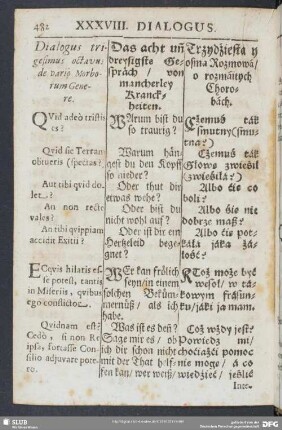 482 XXXVIII. DIALOGUS.
Dialogus tri-
gesimus octavus
de varijs Morbo-
rum Gene-
re.
QVid adeò tristis
es?
Quid sic Terram
obtueris (spectas?)
Aut tibi quid do-
let?
An non recte
vales?
An tibi quippiam
accidit Exitii?
ECqvis hilaris es-
se potest, tantis
in Miseriis, qvibus
ergo conflictor.
Quidnam est?
Cedò, si non Re
ipsa, fortasse Con-
silio adjuvare pote-
ro.
Das acht uñ
dreyssigste Ge-
spräch / von
mancherley
Kranck-
heiten.
WArum bist du
so traurig?
Warum hän-
gest du den Kopff
so nieder?
Oder thut dir
etwas wehe?
Oder bist du
nicht wohl auf?
Oder ist dir ein
Hertzeleid bege-
gnet?
WEr kan frölich
seyn / in einem
solchen Beküm-
mernüß / als ich
habe.
Was ist es deñ?
Sage mir es / ob
ich dir schon nicht
mit der That helf-
fen kan / wer weiß/
Trzydziesta y
osma Rozmowa/
o rozmáitych
Choro-
bách.
CZemuś ták
smutny (smu-
tna?)
Cżemuś ták
Głowę zwiesił
(zwiesiłá?)
Albo ćię co
boli?
Albo śię nie
dobrze masz?
Albo ćię pot-
káłá jáka żá-
łość?
KToż może być
wesoł/ w tá-
kowym frásun-
ku/ jáki ja mam.
Coż wżdy jest?
Powiedz mi/
choćiażći pomoc
nie moge/ á co
wiedzieć/ jeslić
Inte-